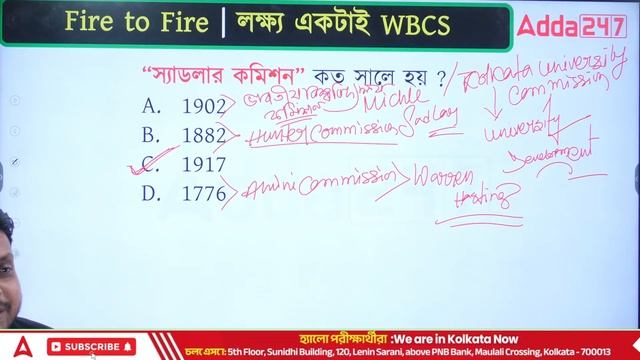 Fire to Fire | লক্ষ্য একটাই WBCS
Adda247
“স্যাডলার কমিশন” কত সালে হয় ? / Kolkata University Commission
A. 1902 > ভারতীয় বিশ্ববিদ্যালয় কমিশন
Michle Sadlay
University
Development
B. 1882 > Hunter Commission
C. 1917
D. 1776 > Amini Commission > Warren Hasting
SUBSCRIBE
হ্যালো পরীক্ষার্থীরা :We are in Kolkata Now
চলে এসো: 5th Floor, Sunidhi Building, 120, Lenin Sarani, above PNB Bank, Maulali Crossing, Kolkata - 700013